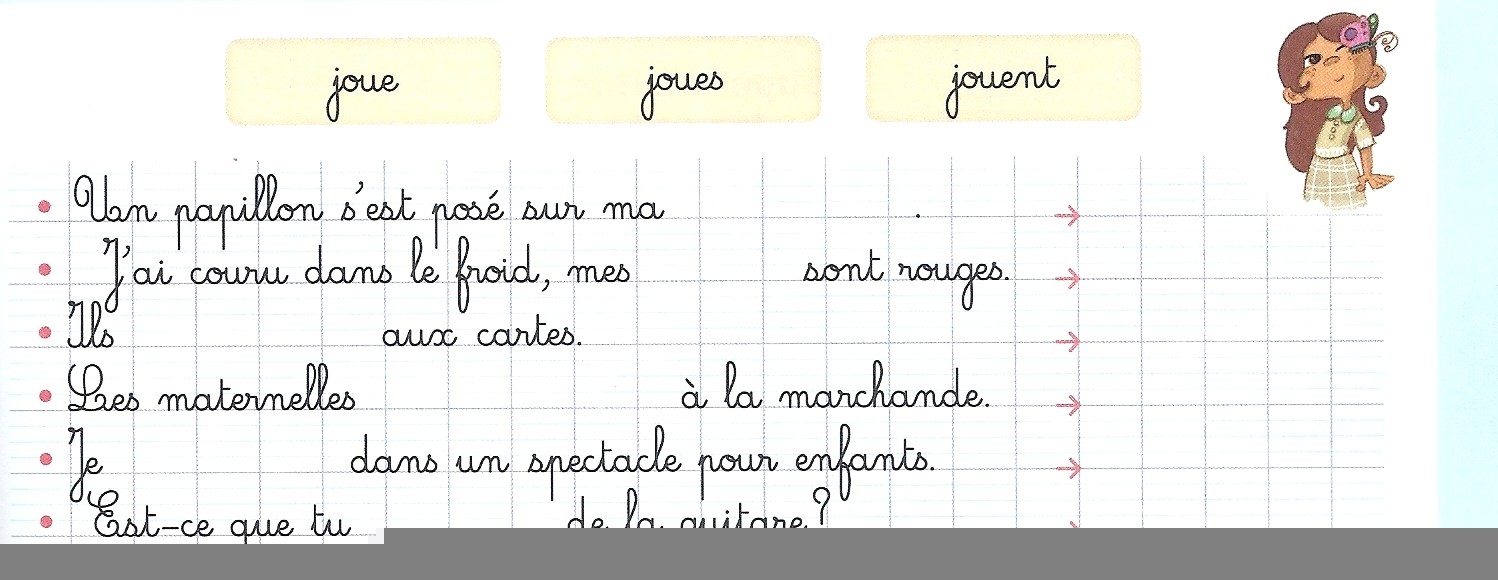 joue joues jouent
Un papillon s'est posé sur ma .
J'ai couru dans le froid, mes sont rouges.
Ils aux cartes.
Les maternelles à la marchande.
Je dans un spectacle pour enfants.
Est-ce que tu de la guitare ?